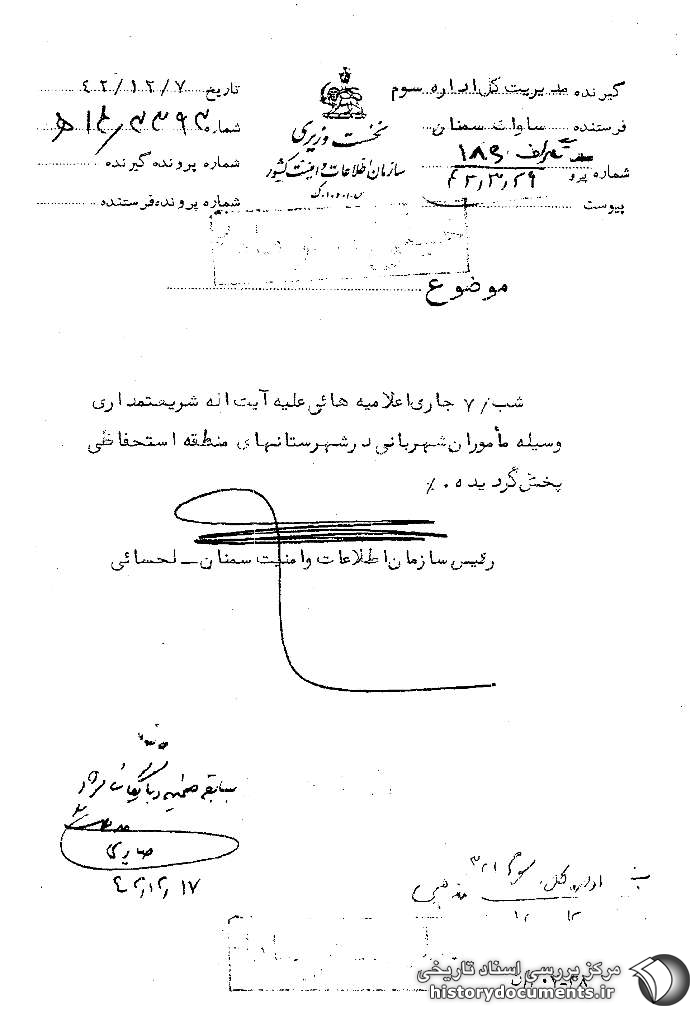 گیرنده مدیریت کل اداره سوم
فرستنده ساواک سمنان
شماره پیرو
پیوست
نخست وزیری
سازمان اطلاعات و امنیت کشور
س.ا.و.ا.ک
تاریخ ۴۲/۱۲/۷
شماره
شماره پرونده گیرنده
شماره پرونده فرستنده
موضوع
شب ۷/ جاری اعلامیه هائی علیه آیت اله شریعتمداری
وسیله مأموران شهربانی در شهرستانهای منطقه استحفاظی
پخش گردیده ۰٪
رئیس سازمان اطلاعات و امنیت سمنان ــ لحسائی
صابری
۴۲/۱۲/۱۷
اداره کل سوم ۳۲۱
مذهبی
مرکز بررسی اسناد تاریخی
historydocuments.ir